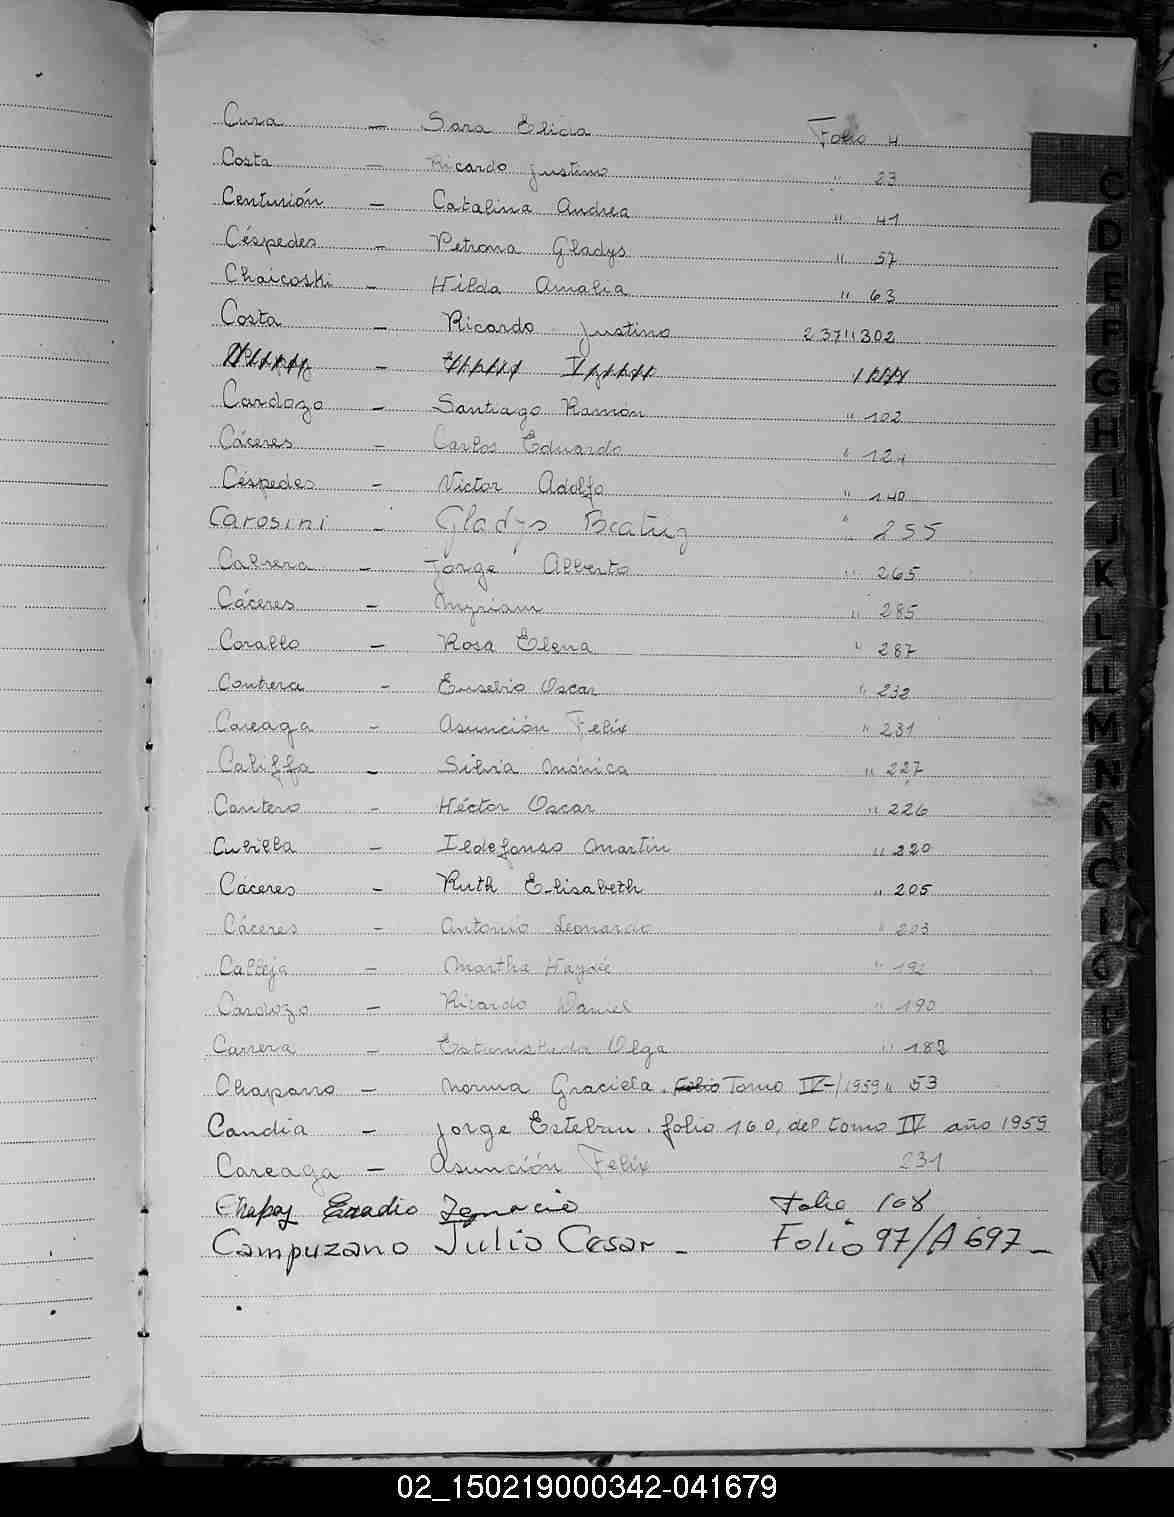 Cura — Sara Elida Folio 4
Costa — Ricardo Justino " 23
Centurión — Catalina Andrea " 41
Céspedes — Petrona Gladys " 57
Chaicoski — Hilda Amalia " 63
Costa — Ricardo Justino 237 " 302
Cardozo — Santiago Ramón " 102
Cáceres — Carlos Eduardo " 124
Céspedes — Víctor Adolfo " 140
Carosini — Gladys Beatriz " 255
Cabrera — Jorge Alberto " 265
Cáceres — Myriam " 285
Corallo — Rosa Elena " 287
Contrera — Eusebio Oscar " 232
Careaga — Asunción Felix " 231
Califfa — Silvia Mónica " 227
Cantero — Héctor Oscar " 226
Cubilla — Ildefonso Martin " 220
Cáceres — Ruth Elisabeth " 205
Cáceres — Antonio Leonardo " 203
Calleja — Martha Haydée " 192
Cardozo — Ricardo Daniel " 190
Carrera — Olga " 182
Chaparro — Norma Graciela. Folio Tomo IV-/1959 " 53
Candia — Jorge Esteban. folio 160, del tomo IV año 1959
Careaga — Asunción Felix 231
Chapay Ignacio Folio 108
Campuzano Julio Cesar — Folio 97/A 697 —
C
D
E
F
G
H
I
J
K
L
LL
M
N
02_150219000342-041679